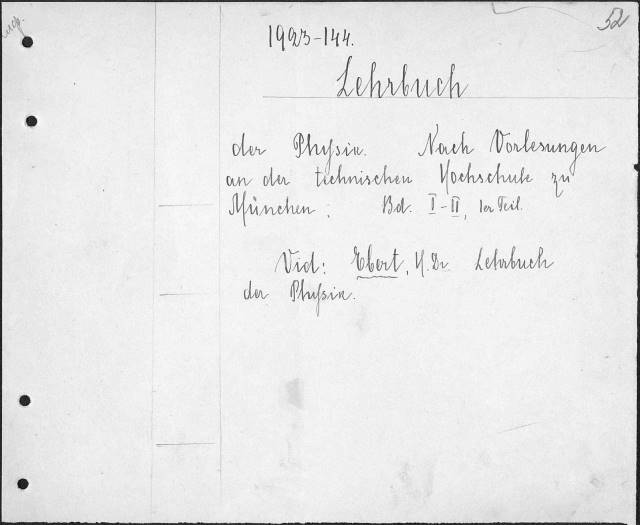 52
1923-144.
Lehrbuch
der Physik. Nach Vorlesungen
an der technischen Hochschule zu
München. Bd. I-II, 1er Teil.
Vid: Ebert, H. Dr. Lehrbuch
der Physik.